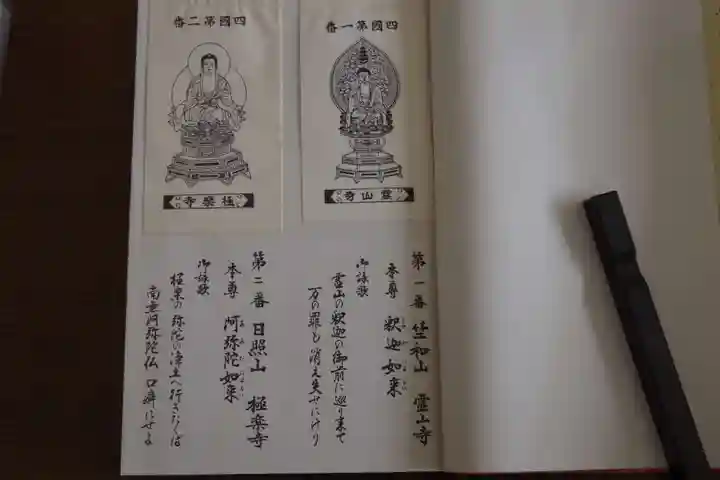 四國第一番
靈山寺
第一番 竺和山 霊山寺
本尊 釈迦如来
御詠歌
霊山の釈迦の御前に巡り来て
万の罪も消え失せにけり
四國第二番
極樂寺
第二番 日照山 極楽寺
本尊 阿弥陀如来
御詠歌
極楽の弥陀の浄土へ行きたくば
南無阿弥陀仏口癖にせよ